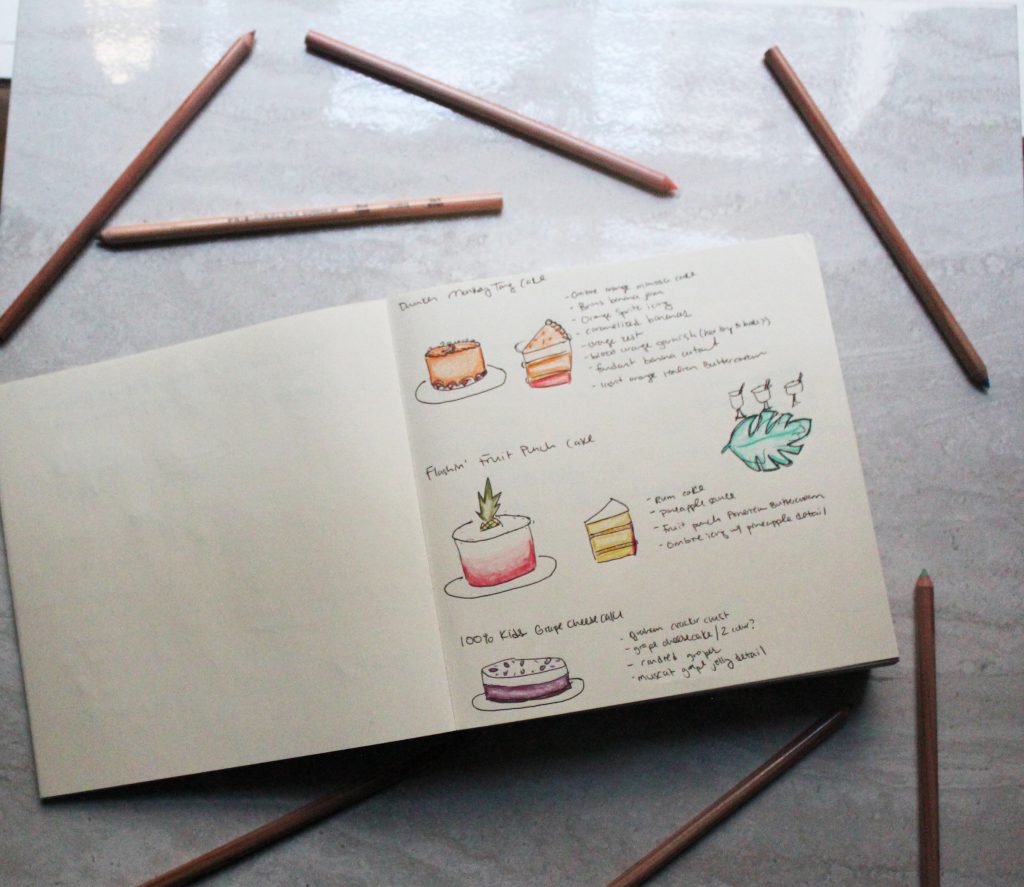 Drunken Monkey Tang Cake
- Ombre orange mimosa cake
- Boozy banana jam
- Orange Sprite icing
- caramelized bananas
- orange zest
- blood orange garnish
- fondant banana custard
- light orange Italian Buttercream
Flashin' Fruit Punch Cake
- Rum cake
- pineapple sauce
- Fruit punch American Buttercream
- Ombre icing w/ pineapple detail
100% Kids Grape Cheesecake
- graham cracker crust
- grape cheesecake / 2 color?
- candied grapes
- muscat grape jelly detail